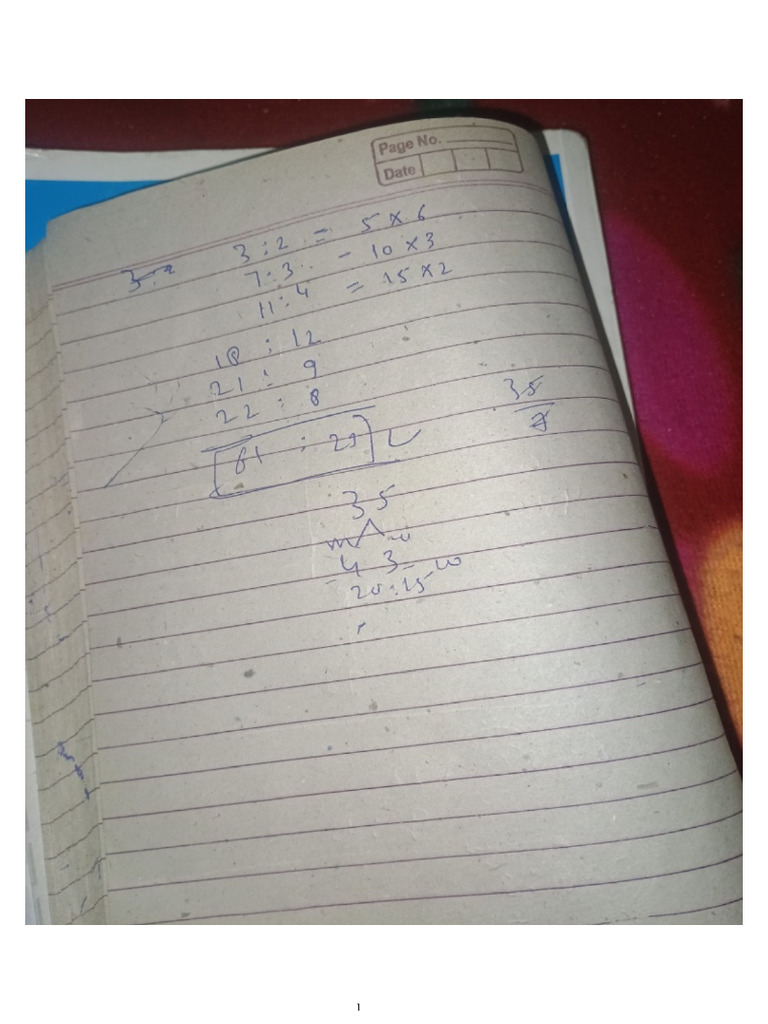 Page No.
Date
3:2
3 : 2 = 5 × 6
7 : 3 - 10 × 3
11 : 4 = 15 × 2
18 : 12
21 : 9
22 : 8
61 : 29
35
35
m
4 3
20:15
1